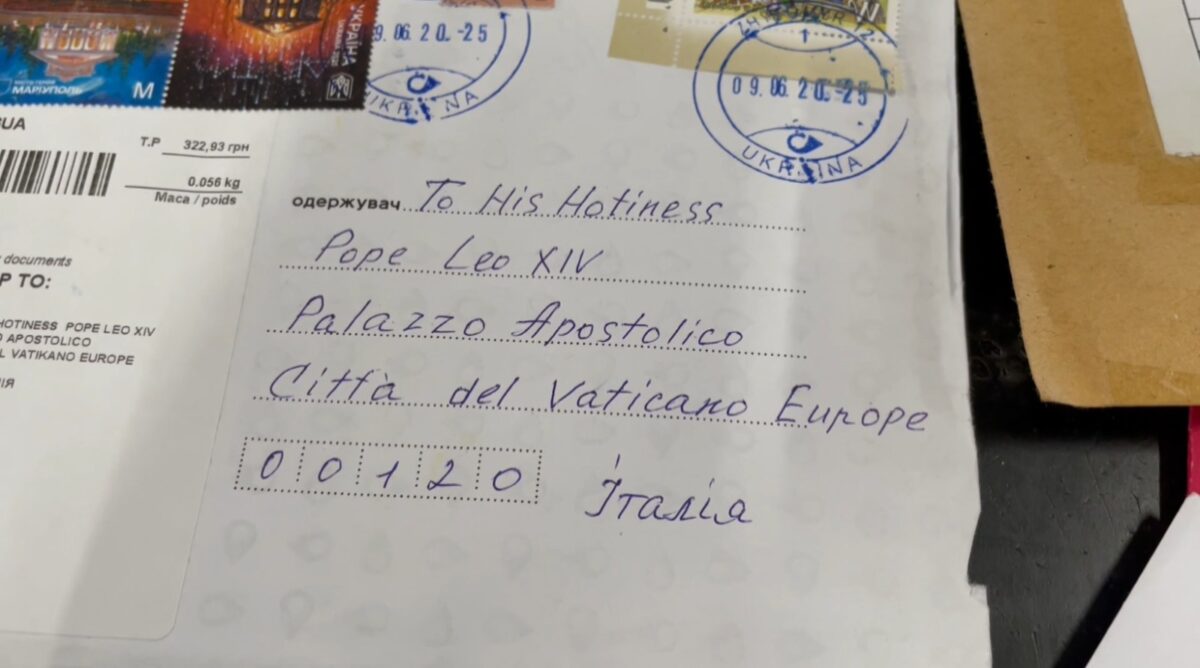 УКРАЇНА
МАРІУПОЛЬ
M
9.06.20.-25
UKRAINA
09.06.20.-25
UKRAINA
UA
T.P 322,93 грн
0.056 kg
Maca / poids
documents
P TO:
HOTINESS POPE LEO XIV
APOSTOLICO
L VATIKANO EUROPE
ІЯ
одержувач To His Hotiness
Pope Leo XIV
Palazzo Apostolico
Città del Vaticano Europe
00120
Італія